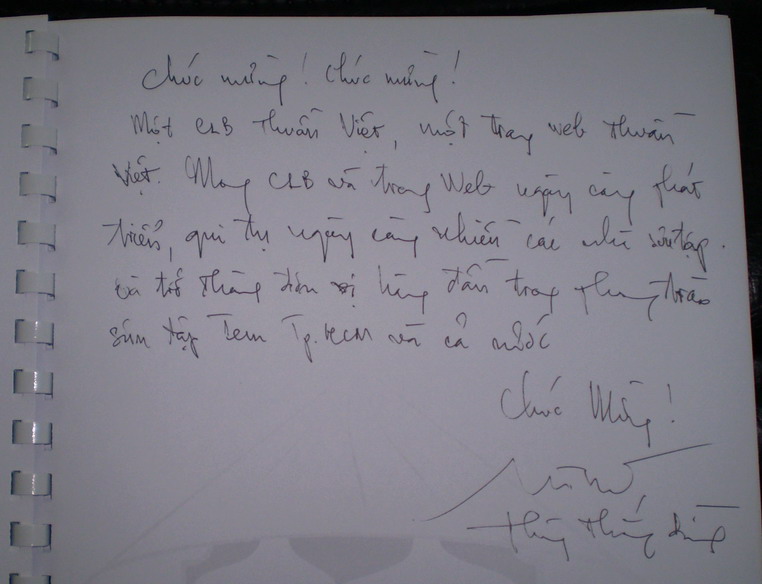 Chúc mừng! Chúc mừng!
Một CLB Thuần Việt, một trang web Thuần
Việt. Mong CLB và trang Web ngày càng phát
triển, qui tụ ngày càng nhiều các nhà sưu tập.
và trở thành đơn vị hàng đầu trong phong trào
sưu tập Tem Tp.HCM và cả nước
Chúc Mừng!